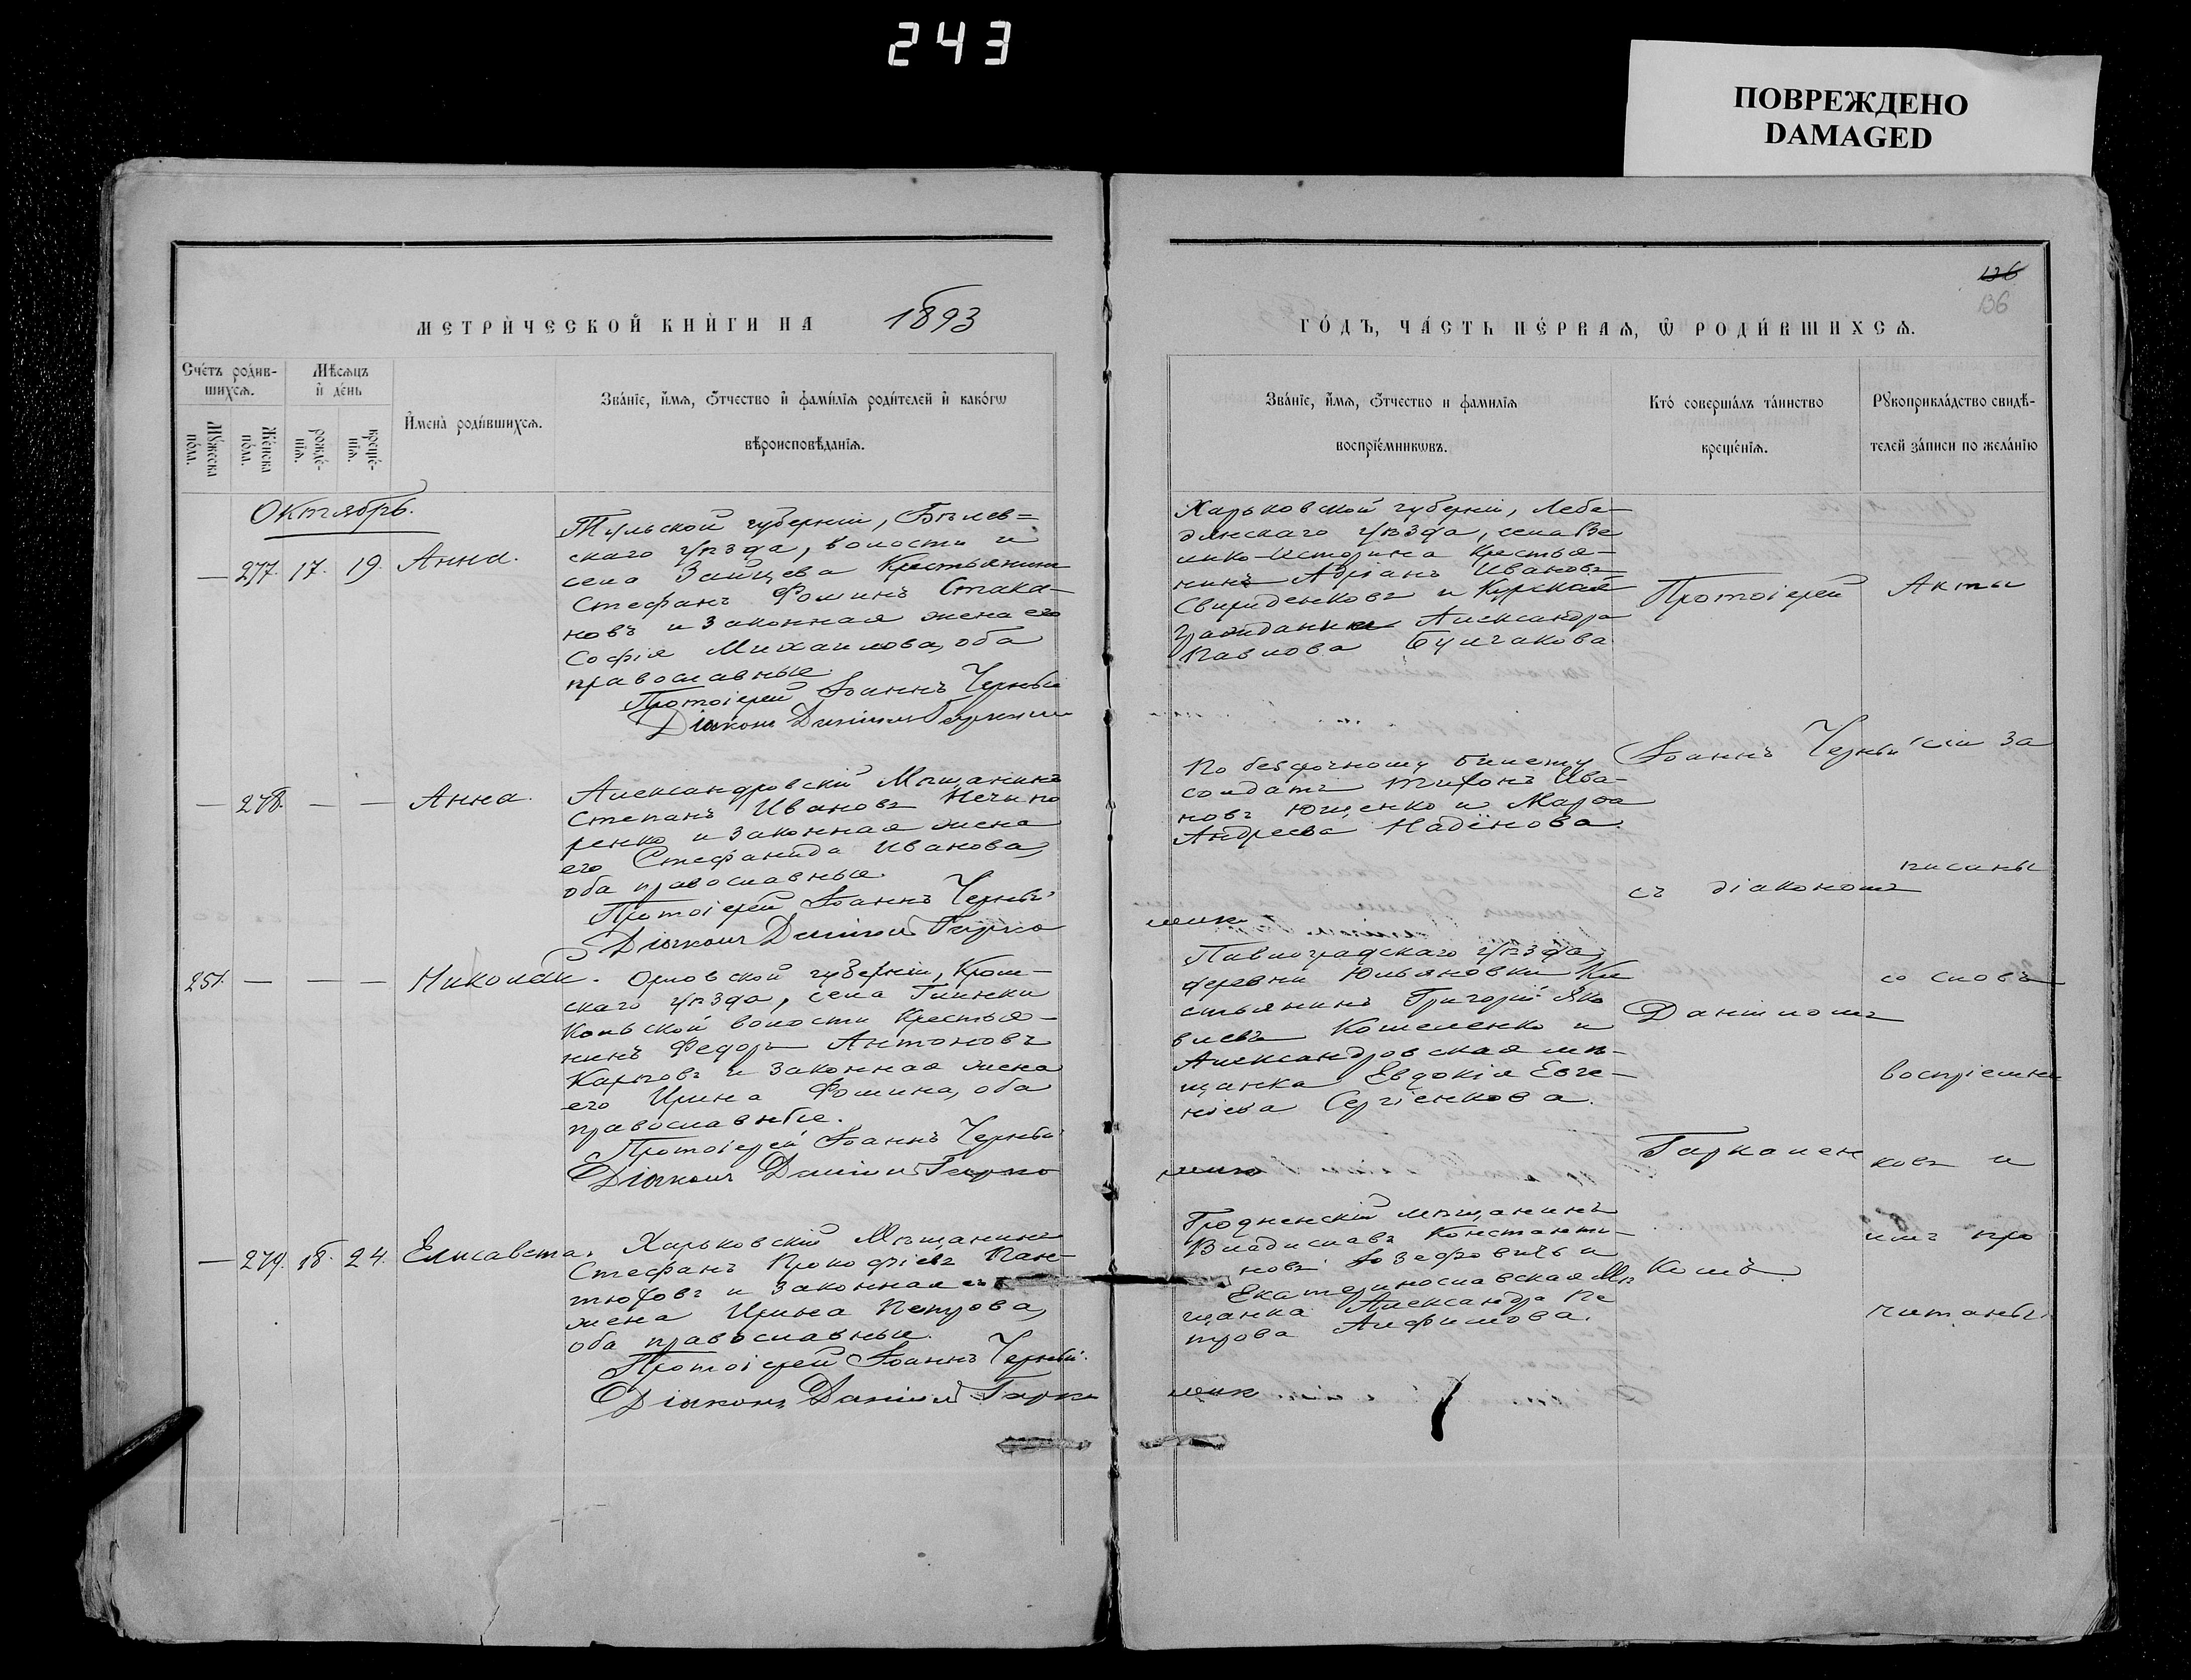 243
ПОВРЕЖДЕНО
DAMAGED
136
136
МЕТРИ́ЧЕСКОЙ КНИ́ГИ НА 1893
ГО́ДЪ, ЧА́СТЬ ПЕ́РВАѦ, Ѡ РОДИ́ВШИХСѦ.
Сче́тъ роди́в-
шихсѧ.
Мꙋ́жеска
по́ла.
Же́нска
по́ла.
Мѣ́сѧцъ
и҆ де́нь
рожде́-
нїѧ.
креще́-
нїѧ.
И҆мена̀ роди́вшихсѧ.
Зва́нїе, и҆́мѧ, ѻ҆́тчество и҆ фами́лїѧ роди́телей и҆ како́гѡ
вѣроисповѣ́данїѧ.
Зва́нїе, и҆́мѧ, ѻ҆́тчество и фами́лїѧ
воспрїе́мникѡвъ.
Кто́ соверша́лъ та́инство
креще́нїѧ.
Рꙋкоприкла́дство свидѣ́-
телей за́писи по жела́нїю
Октябрь.
— 277. 17. 19. Анна.
Тульской губерніи, Бѣлев=
скаго уѣзда, волости и
села Зайцева Крестьянинъ
Стефанъ Фоминъ Стака-
новъ и законная жена его
Софія Михаилова, оба
православные.
Протоіерей Іоаннъ Черный
Діаконъ Даніилъ
Харьковской губерніи, Лебе-
динскаго уѣзда, села Ве
лико-Историна Крестья-
нинъ Адріанъ Ивановъ
Свириденковъ и Курская
Гражданка Александра
Павлова Булгакова.
— 278. — — Анна.
Александровскій Мѣщанинъ
Степанъ Ивановъ Нечипо
ренко и законная жена
его Стефанида Иванова,
оба православные.
Протоіерей Іоаннъ Черный
Діаконъ Даніилъ Гарка
По безсрочному билету
солдатъ Тихонъ Ива-
новъ Ющенко и Марфа
Андреева Надёнова.
ленк
251. — — — Николай.
Орловской губерніи, Кром-
скаго уѣзда, села Глинки
Кольской волости Крестья-
нинъ Федоръ Антоновъ
Карповъ и законная жена
его Ирина Фомина, оба
православные.
Протоіерей Іоаннъ Черный
Діаконъ Даніилъ Гарка
Павлоградскаго уѣзда,
деревни Юльяновки Кре
стьянинъ Григорій Яко
влевъ Кошеленко и
Александровская мѣ-
щанка Евдокія Евге-
ніева Сергіенкова.
ленко
— 279. 18. 24. Елисавета.
Харьковскій Мѣщанинъ
Стефанъ Прокофіевъ Пан-
тюховъ и законная его
жена Ирина Петрова,
оба православные.
Протоіерей Іоаннъ Черный.
Діаконъ Даніилъ Гарка
Гродненскій мѣщанинъ
Владиславъ Константи-
новъ Іозефовичъ и
Екатеринославская Мѣ
щанка Александра Пе
трова Анфимова.
ленк
Протоіерей
Іоаннъ Черный
съ діакономъ
Даніиломъ
Гаркален
комъ.
Акты
сіи за
писаны
со словъ
воспріемни
ковъ и
имъ про
читаны.